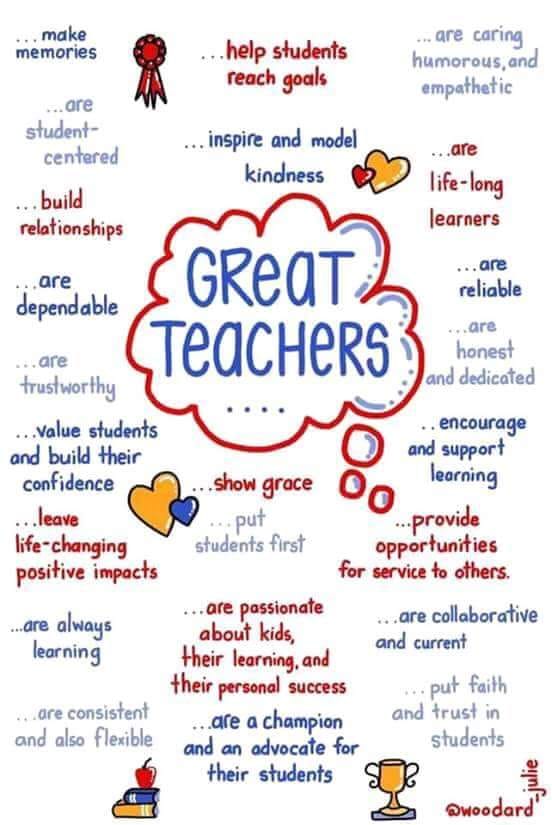 ...make
memories
...help students
reach goals
...are caring
humorous, and
empathetic
...are
student-
centered
...inspire and model
kindness
...are
life-long
learners
...build
relationships
GReaT
TeacHeRS
....
...are
dependable
...are
reliable
...are
trustworthy
...are
honest
and dedicated
...value students
and build their
confidence
..encourage
and support
learning
...show grace
...put
students first
...leave
life-changing
positive impacts
...provide
opportunities
for service to others.
...are always
learning
...are passionate
about kids,
their learning, and
their personal success
...are collaborative
and current
...are consistent
and also flexible
...are a champion
and an advocate for
their students
...put faith
and trust in
students
@woodard_julie